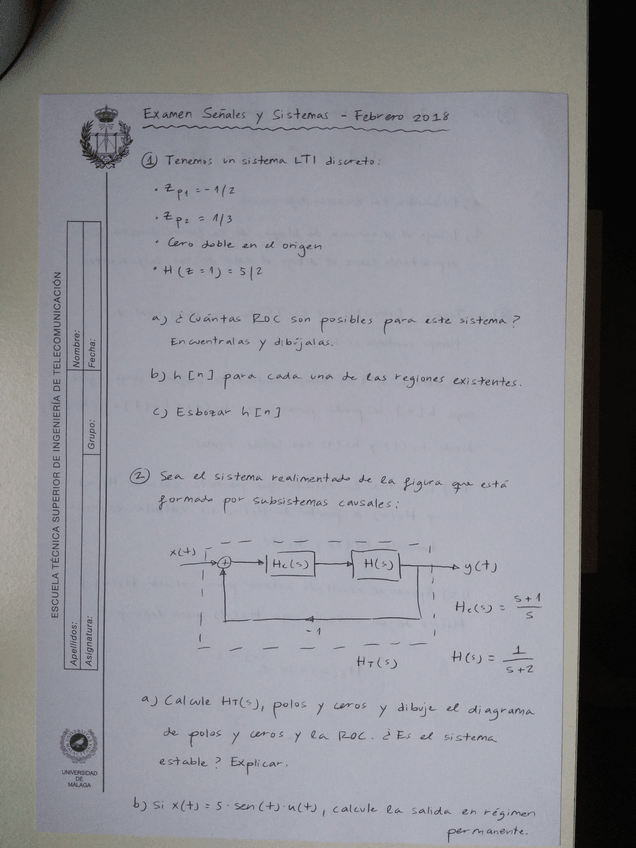 Examen Señales y Sistemas - Febrero 2018
① Tenemos un sistema LTI discreto:
• Zp1 = -1/2
• Zp2 = 1/3
• Cero doble en el origen
• H(z=1) = 5/2
a) ¿Cuántas ROC son posibles para este sistema?
Encuentralas y dibújalas.
b) h[n] para cada una de las regiones existentes.
c) Esbozar h[n]
② Sea el sistema realimentado de la figura que está
formado por subsistemas causales:
x(t)
+
Hc(s)
H(s)
y(t)
-1
HT(s)
Hc(s) = s+1/s
H(s) = 1/s+2
a) Calcule HT(s), polos y ceros y dibuje el diagrama
de polos y ceros y la ROC. ¿Es el sistema
estable? Explicar.
b) Si x(t) = 5·sen(t)·u(t), calcule la salida en régimen
permanente.
ESCUELA TÉCNICA SUPERIOR DE INGENIERÍA DE TELECOMUNICACIÓN
Apellidos:
Nombre:
Asignatura:
Grupo:
Fecha:
UNIVERSIDAD
DE
MÁLAGA